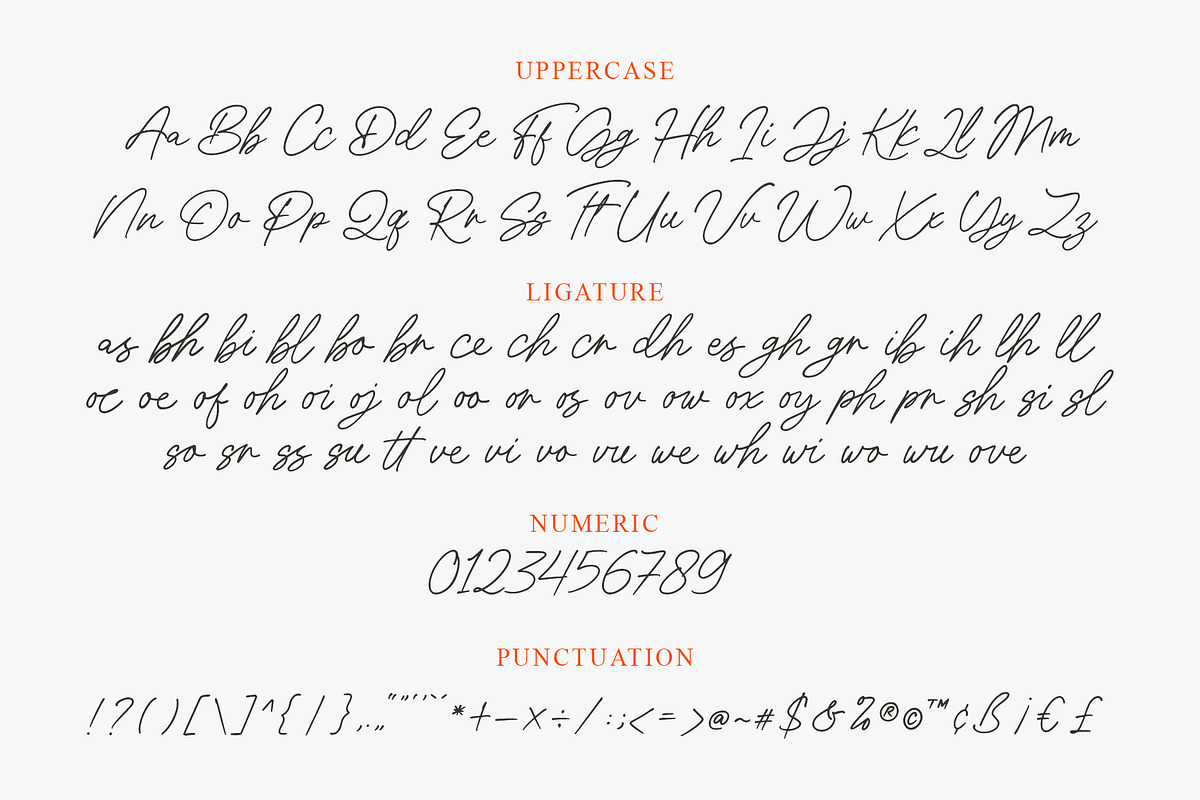 UPPERCASE
Aa Bb Cc Dd Ee Ff Gg Hh Ii Jj Kk Ll Mm
Nn Oo Pp Qq Rr Ss Tt Uu Vv Ww Xx Yy Zz
LIGATURE
as bh bi bl bo br ce ch cr dh es gh gr ib ih lh ll
oc oe of oh oi oj ol oo or os ov ow ox oy ph pr sh si sl
so sr ss su tt ve vi vo vu we wh wi wo wu ove
NUMERIC
0123456789
PUNCTUATION
!?()[\]^{|},.„"”''`´*+–×÷/:;<=>@~#$&%®©™¢ß¡€£